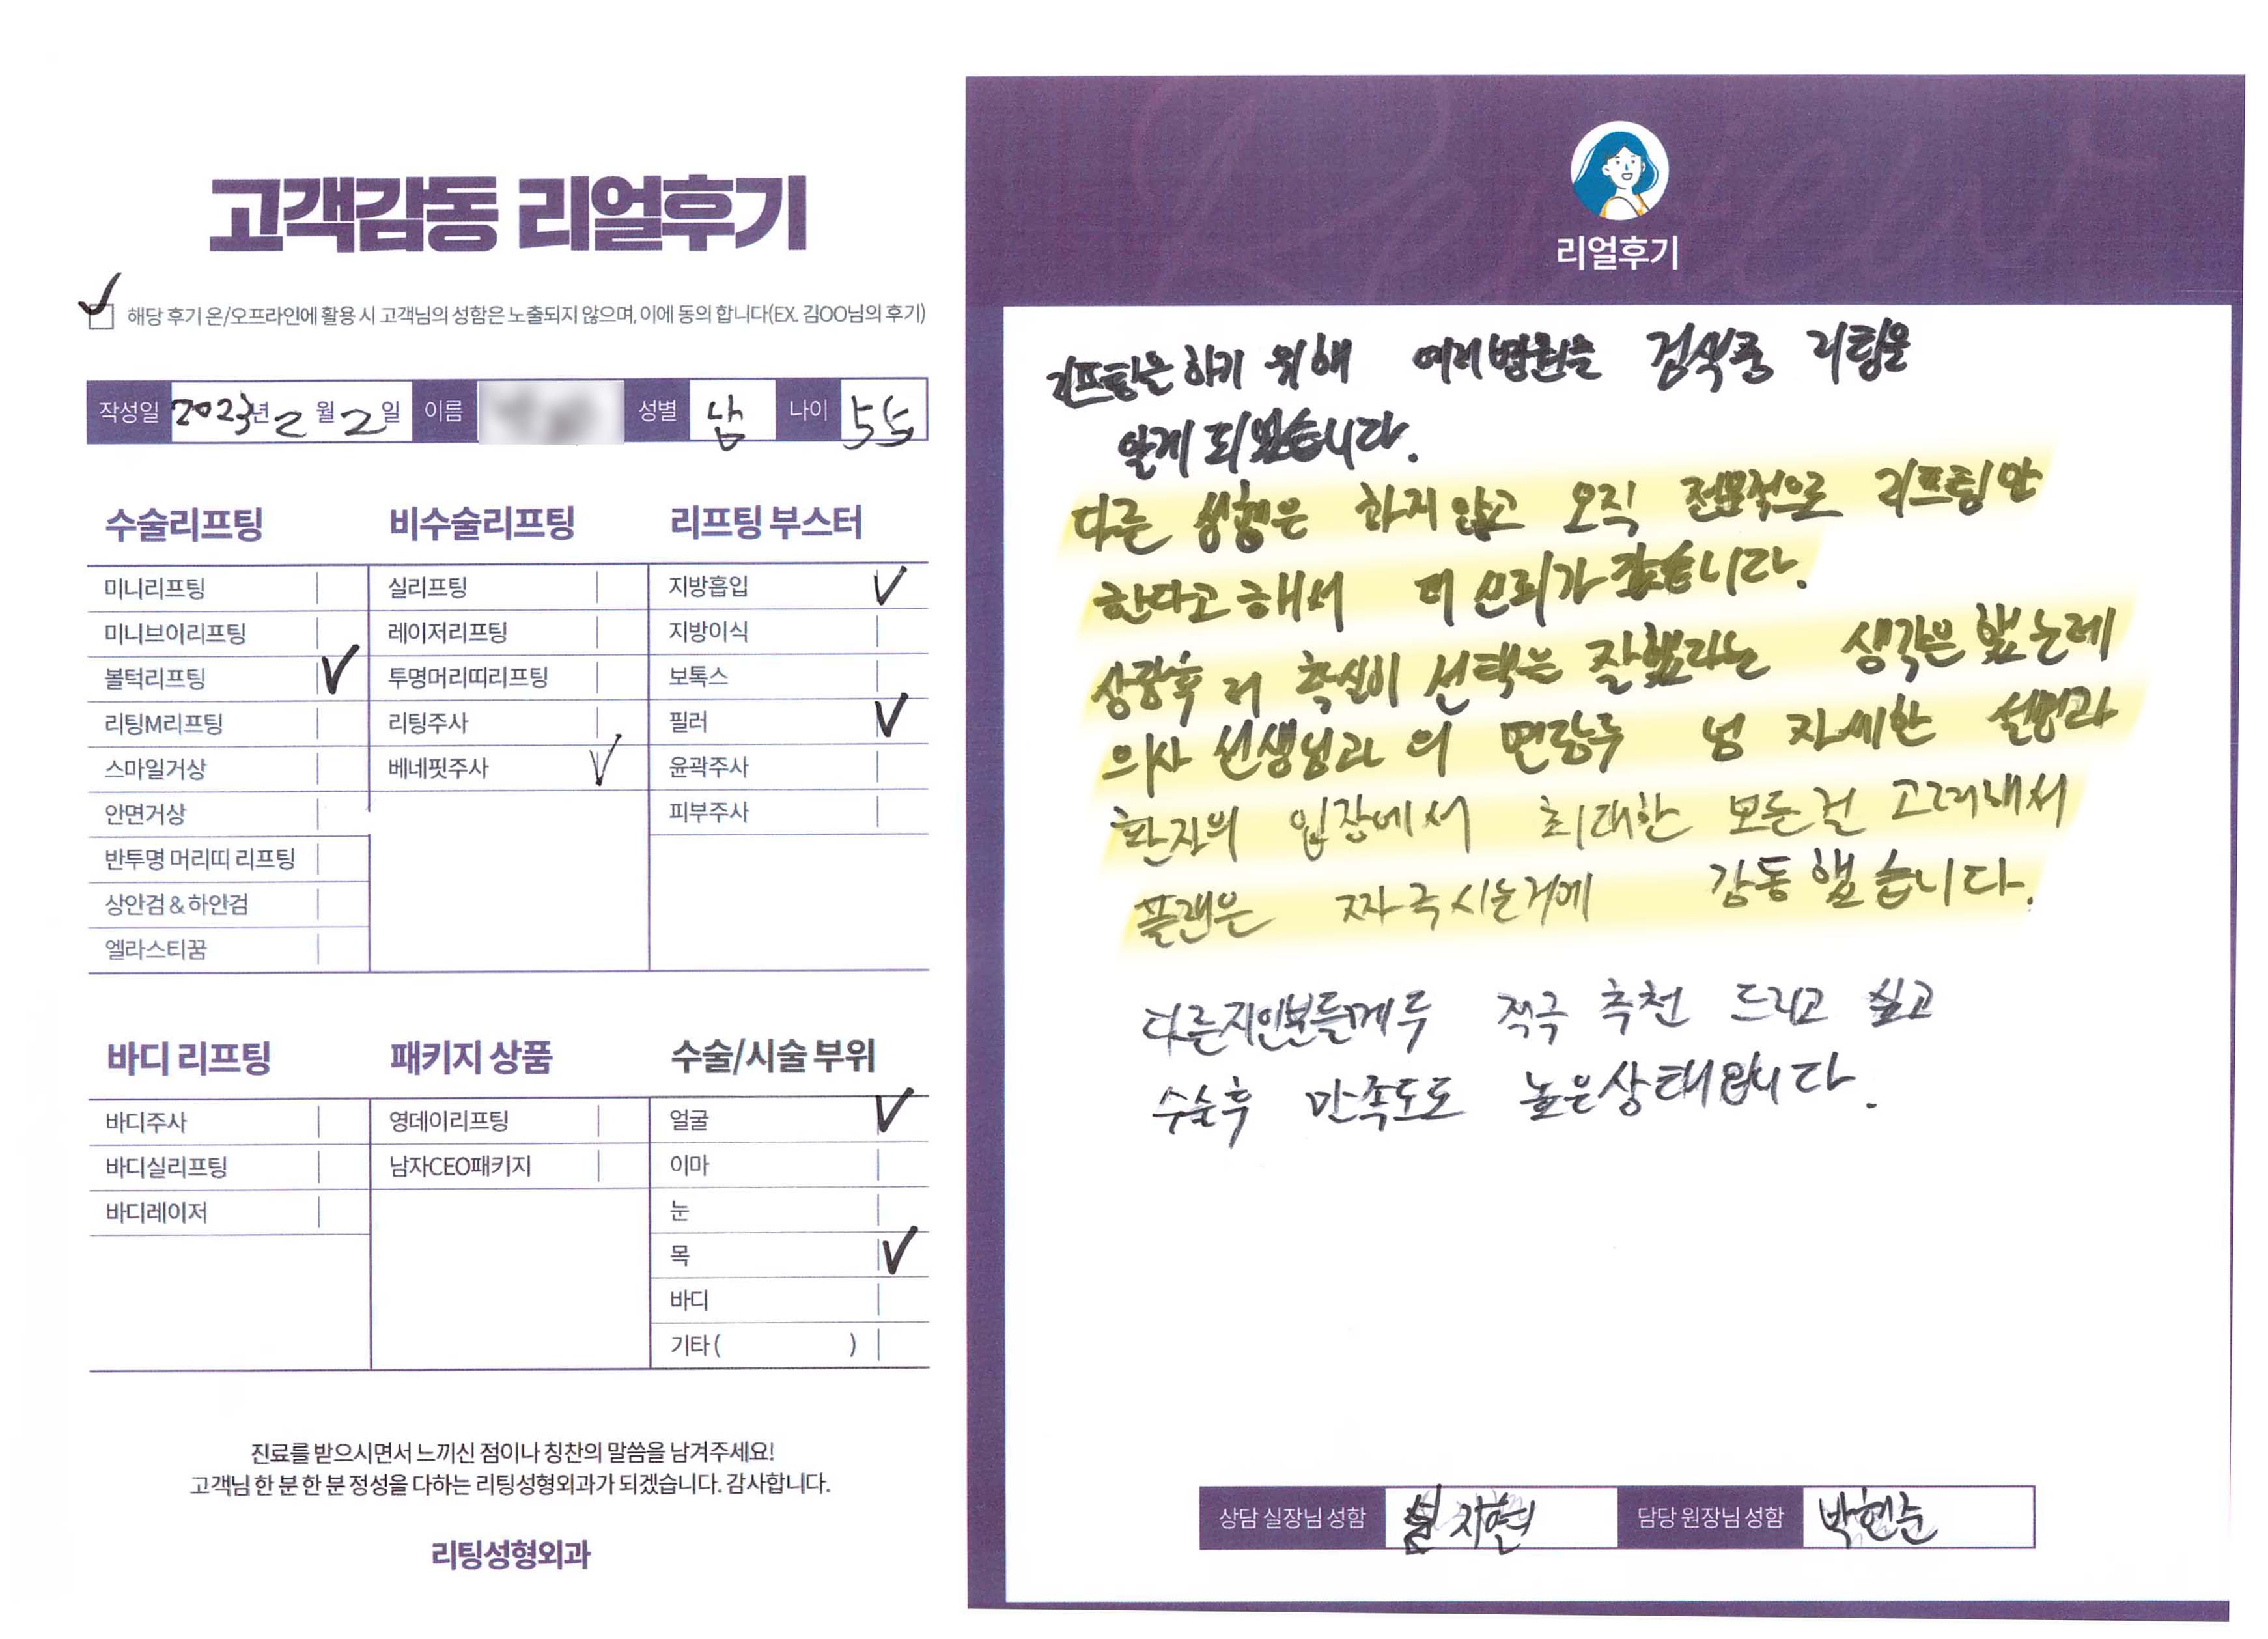 고객감동 리얼후기
해당 후기 온/오프라인에 활용 시 고객님의 성함은 노출되지 않으며, 이에 동의 합니다(EX. 김OO님의 후기)
작성일 2023년 2월 2일 이름 성별 남 나이 55
수술리프팅
미니리프팅
미니브이리프팅
볼턱리프팅
리팅M리프팅
스마일거상
안면거상
반투명 머리띠 리프팅
상안검 & 하안검
엘라스티꿈
비수술리프팅
실리프팅
레이저리프팅
투명머리띠리프팅
리팅주사
베네핏주사
리프팅 부스터
지방흡입
지방이식
보톡스
필러
윤곽주사
피부주사
바디 리프팅
바디주사
바디실리프팅
바디레이저
패키지 상품
영데이리프팅
남자CEO패키지
수술/시술 부위
얼굴
이마
눈
목
바디
기타 ( )
진료를 받으시면서 느끼신 점이나 칭찬의 말씀을 남겨주세요!
고객님 한 분 한 분 정성을 다하는 리팅성형외과가 되겠습니다. 감사합니다.
리팅성형외과
리얼후기
리프팅을 하기 위해 여러병원을 검색중 리팅을
알게 되었습니다.
다른 성형은 하지 않고 오직 전문적으로 리프팅만
한다고 해서 더 신뢰가 갔습니다.
상담후 더 확실이 선택을 잘했라는 생각을 했는데
의사 선생님과 의 면담두 넘 자세한 설명과
환자의 입장에서 최대한 모든걸 고려해서
플랜을 짜주시는거에 감동했습니다.
다른지인분들께두 적극 추천 드리고 싶고
수술후 만족도도 높은상태입니다.
상담 실장님 성함 설지현 담당 원장님 성함 박현준